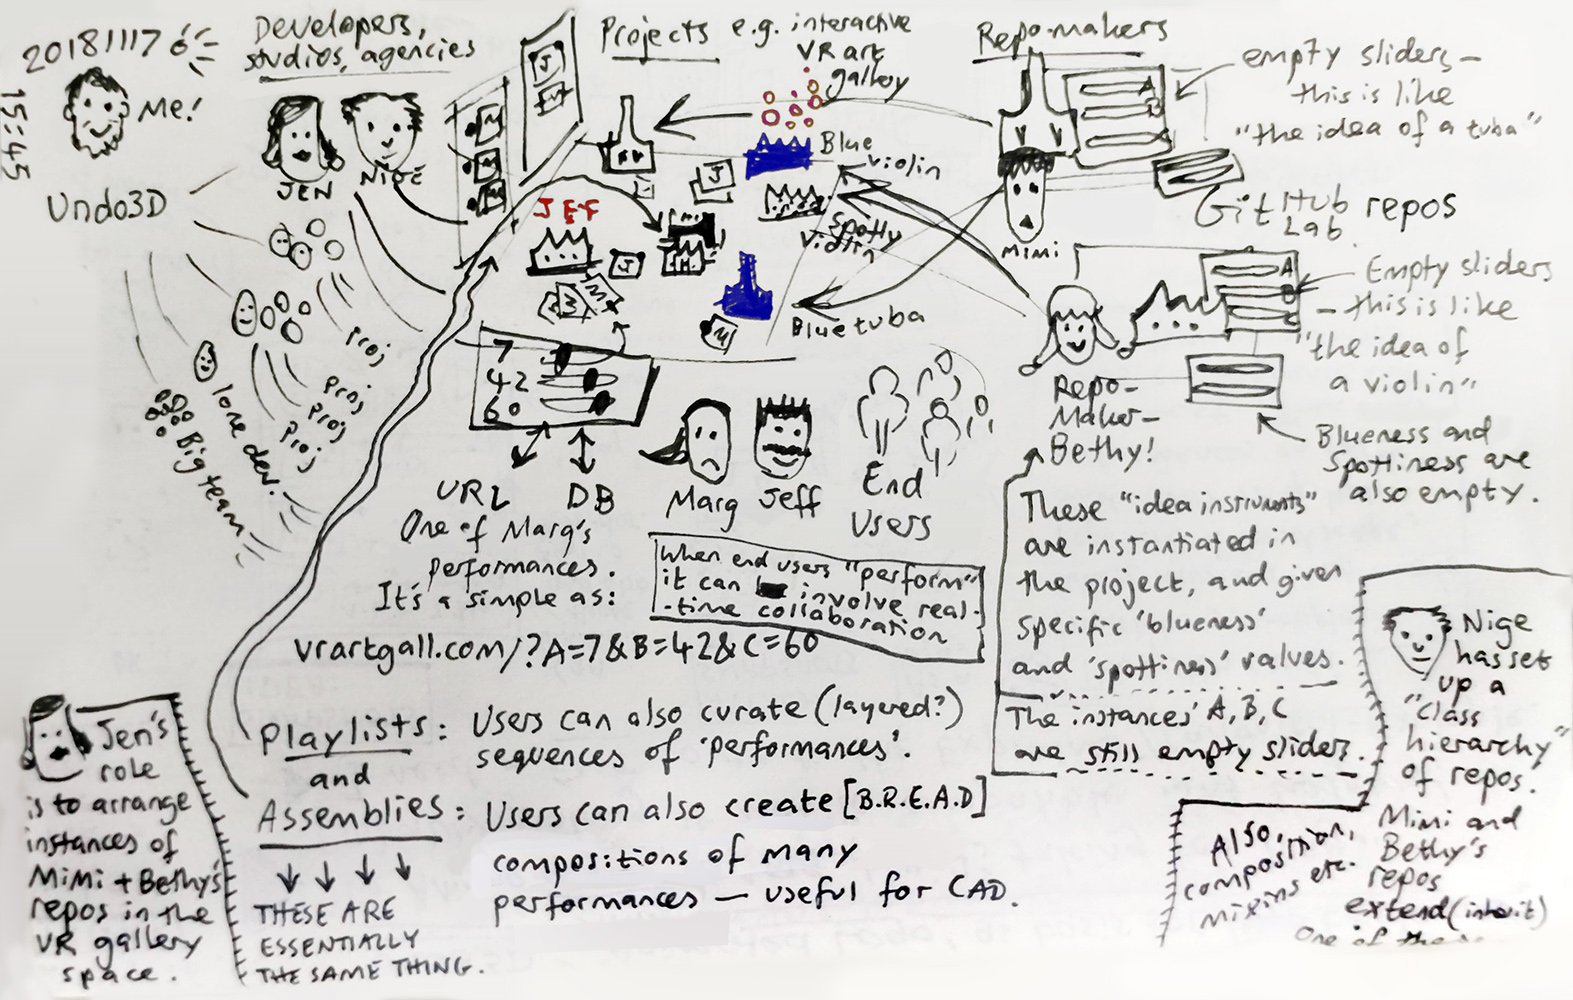 20181117
15:45
Me!
Undo3D
Developers,
studios, agencies
JEN
NIGE
Projects e.g. interactive
VR art
gallery
Repo-makers
Blue
violin
Spotty
violin
Blue tuba
JEF
J
J
M
M
M
J
J
M
A
B
C
empty sliders –
this is like
"the idea of a tuba"
GitHub
Lab
repos
Mimi
A
B
C
Empty sliders
– this is like
"the idea of
a violin"
Repo-
Maker-
Bethy!
Blueness and
Spottiness are
also empty.
proj
proj
proj
proj
lone dev.
Big team
7
42
60
URL
DB
Marg
Jeff
End
Users
One of Marg's
performances.
It's a simple as:
vrartgall.com/?A=7&B=42&C=60
When end users "perform"
it can involve real-
-time collaboration
These "idea instruments"
are instantiated in
the project, and given
specific 'blueness'
and 'spottiness' values.
The instances' A, B, C
are still empty sliders.
Nige
has set
up a
"class
hierarchy"
of repos.
Mimi and
Bethy's
repos
extend (inherit)
one of these
Also,
composition,
mixins etc.
Playlists: Users can also curate (layered?)
sequences of 'performances'.
and
Assemblies: Users can also create [B.R.E.A.D]
compositions of many
performances — useful for CAD.
THESE ARE
ESSENTIALLY
THE SAME THING.
Jen's
role
is to arrange
instances of
Mimi + Bethy's
repos in the
VR gallery
space.